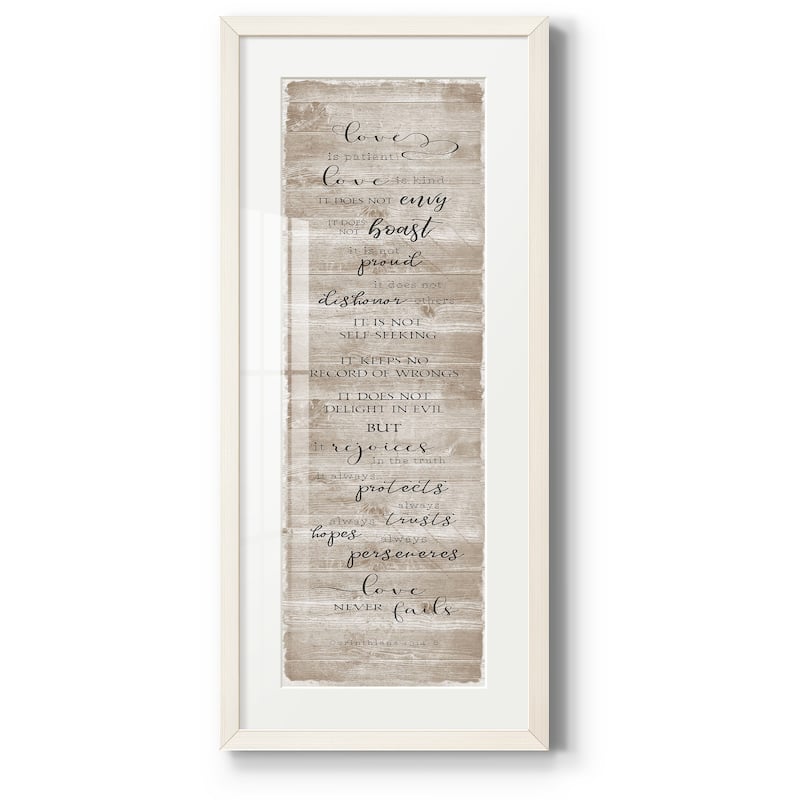 love
is patient
love is kind
IT DOES NOT envy
IT DOES NOT boast
it is not
proud
it does not
dishonor others
IT IS NOT
SELF-SEEKING
IT KEEPS NO
RECORD OF WRONGS
IT DOES NOT
DELIGHT IN EVIL
BUT
it rejoices
in the truth
it always
protects
always
always trusts
hopes always
perseveres
love
NEVER fails
corinthians